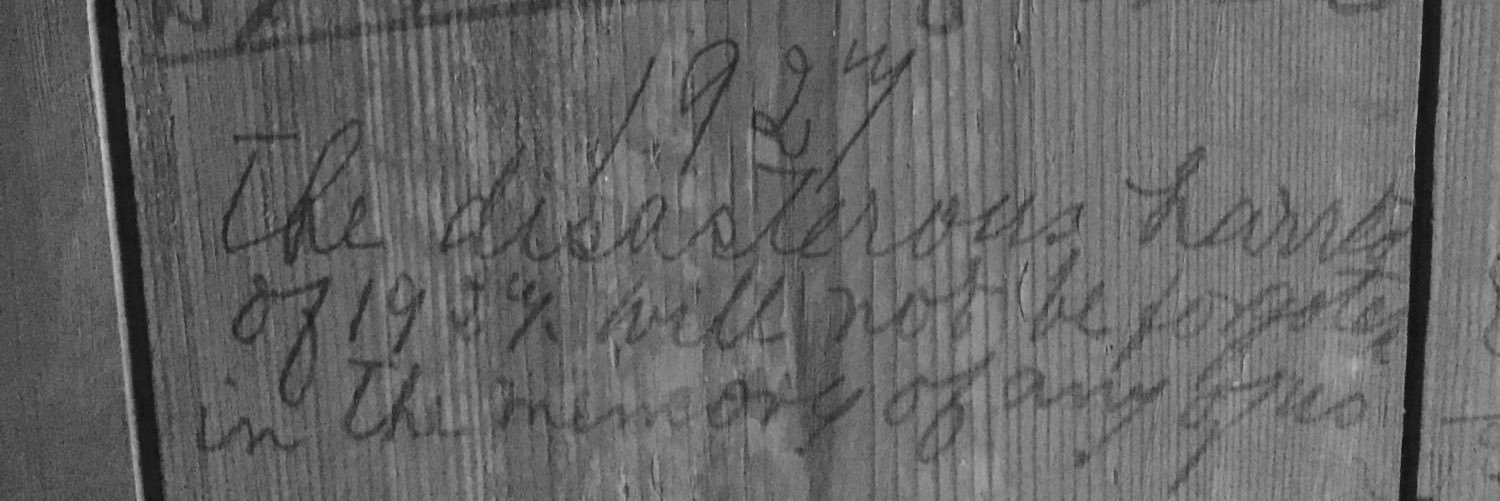 1927
The disasterous harvest
of 1927 will not be forgoten
in the memory of any of us